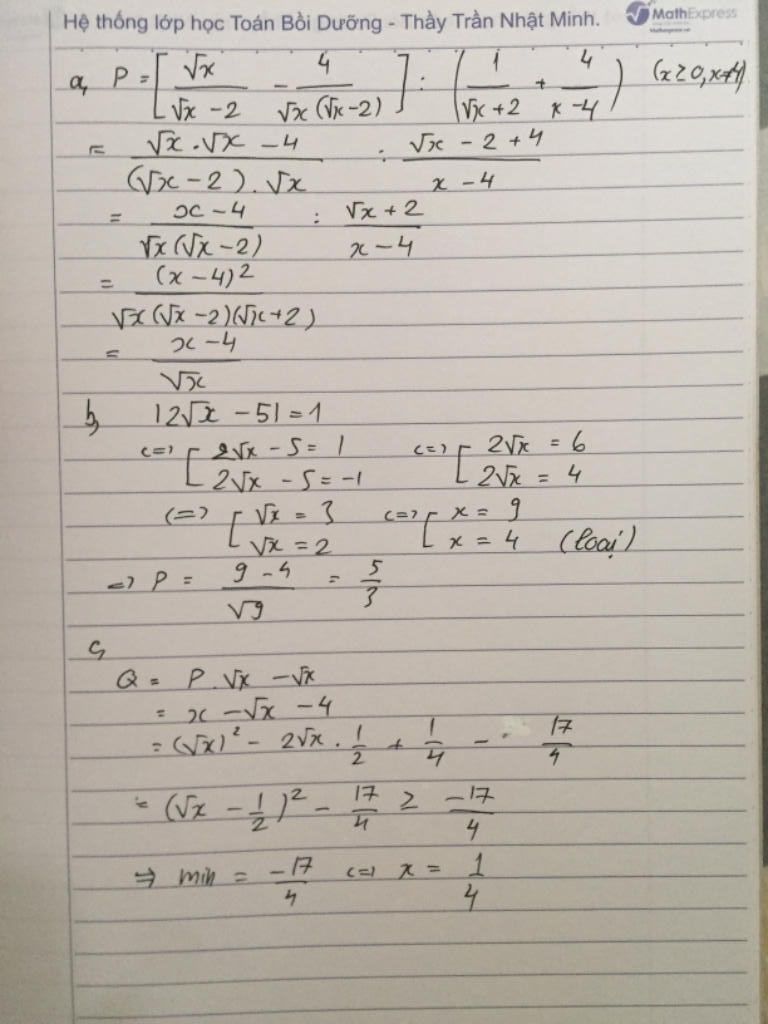 Hệ thống lớp học Toán Bồi Dưỡng - Thầy Trần Nhật Minh. MathExpress
a, P = [ √x / (√x - 2) - 4 / (√x(√x-2)) ] : ( 1 / (√x + 2) + 4 / (x - 4) ) (x ≥ 0, x ≠ 4)
= (√x . √x - 4) / ((√x - 2) . √x) : (√x - 2 + 4) / (x - 4)
= (x - 4) / (√x(√x - 2)) : (√x + 2) / (x - 4)
= (x - 4)² / (√x(√x - 2)(√x + 2))
= (x - 4) / √x
b, |2√x - 5| = 1
<=> [ 2√x - 5 = 1 <=> [ 2√x = 6
2√x - 5 = -1 2√x = 4
<=> [ √x = 3 <=> [ x = 9
√x = 2 x = 4 (loại)
=> P = (9 - 4) / √9 = 5/3
c,
Q = P . √x - √x
= x - √x - 4
= (√x)² - 2√x . 1/2 + 1/4 - 17/4
= (√x - 1/2)² - 17/4 ≥ -17/4
=> min = -17/4 <=> x = 1/4